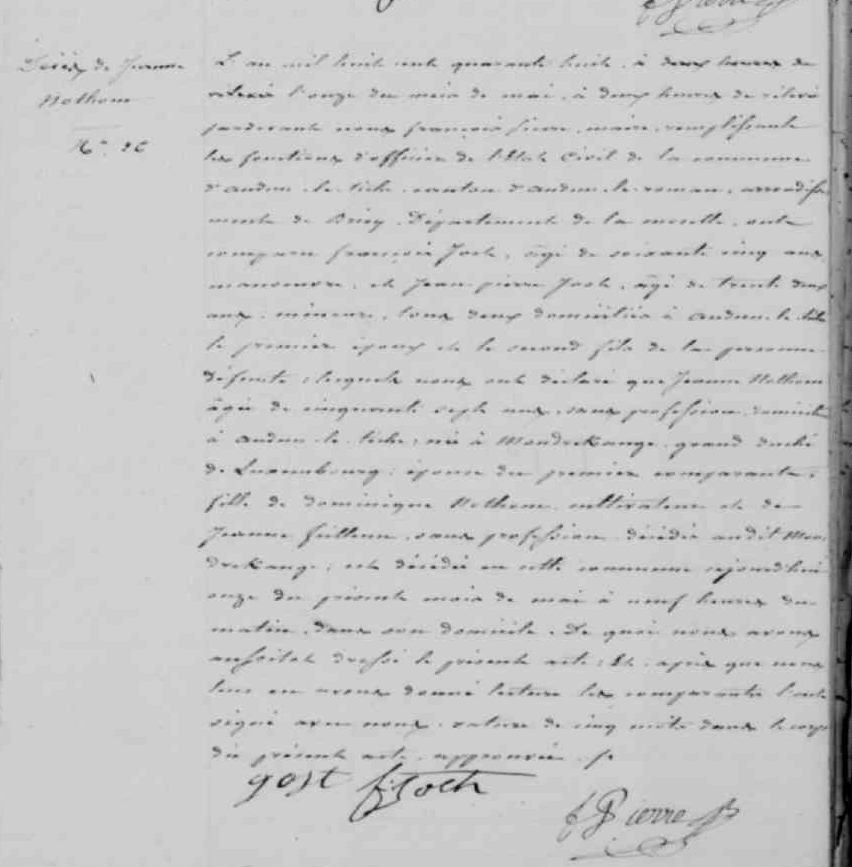 Décès de Jeanne
Nothom
N° 26
L'an mil huit cent quarante huit, à deux heures de
relevée l'onze du mois de mai, à deux heures de relevé
pardevant nous françois pierre, maire, remplissant
les fonctions d'officier de l'Etat Civil de la commune
d'audun-le-tiche canton d'audun-le-roman, arrondisse
ment de Briey, Département de la moselle, ont
comparu françois Joch, âgé de soixante cinq ans
manoeuvre, et Jean-pierre Joch, âgé de trente deux
ans, mineur, tous deux domiciliés à audun-le-tiche
le premier époux et le second fils de la personne
défunte; lesquels nous ont déclaré que Jeanne Nothom
âgée de cinquante sept ans, sans profession domicilié
à audun-le-tiche, née à Mondrekange grand duché
de Luxembourg; épouse du premier comparant;
fille de dominique Nothom cultivateur et de
Jeanne, sans profession décédés audit Mon
drekange; est décédée en cette commune cejourd'hui
onze du présent mois de mai à neuf heures du
matin, dans son domicile. De quoi nous avons
aussitôt dressé le présent acte; Et, après que nous
leur en avons donné lecture les comparants l'ont
signé avec nous. rature de cinq mots dans le corps
du présent acte approuvée
gost f Joch
f Pierre